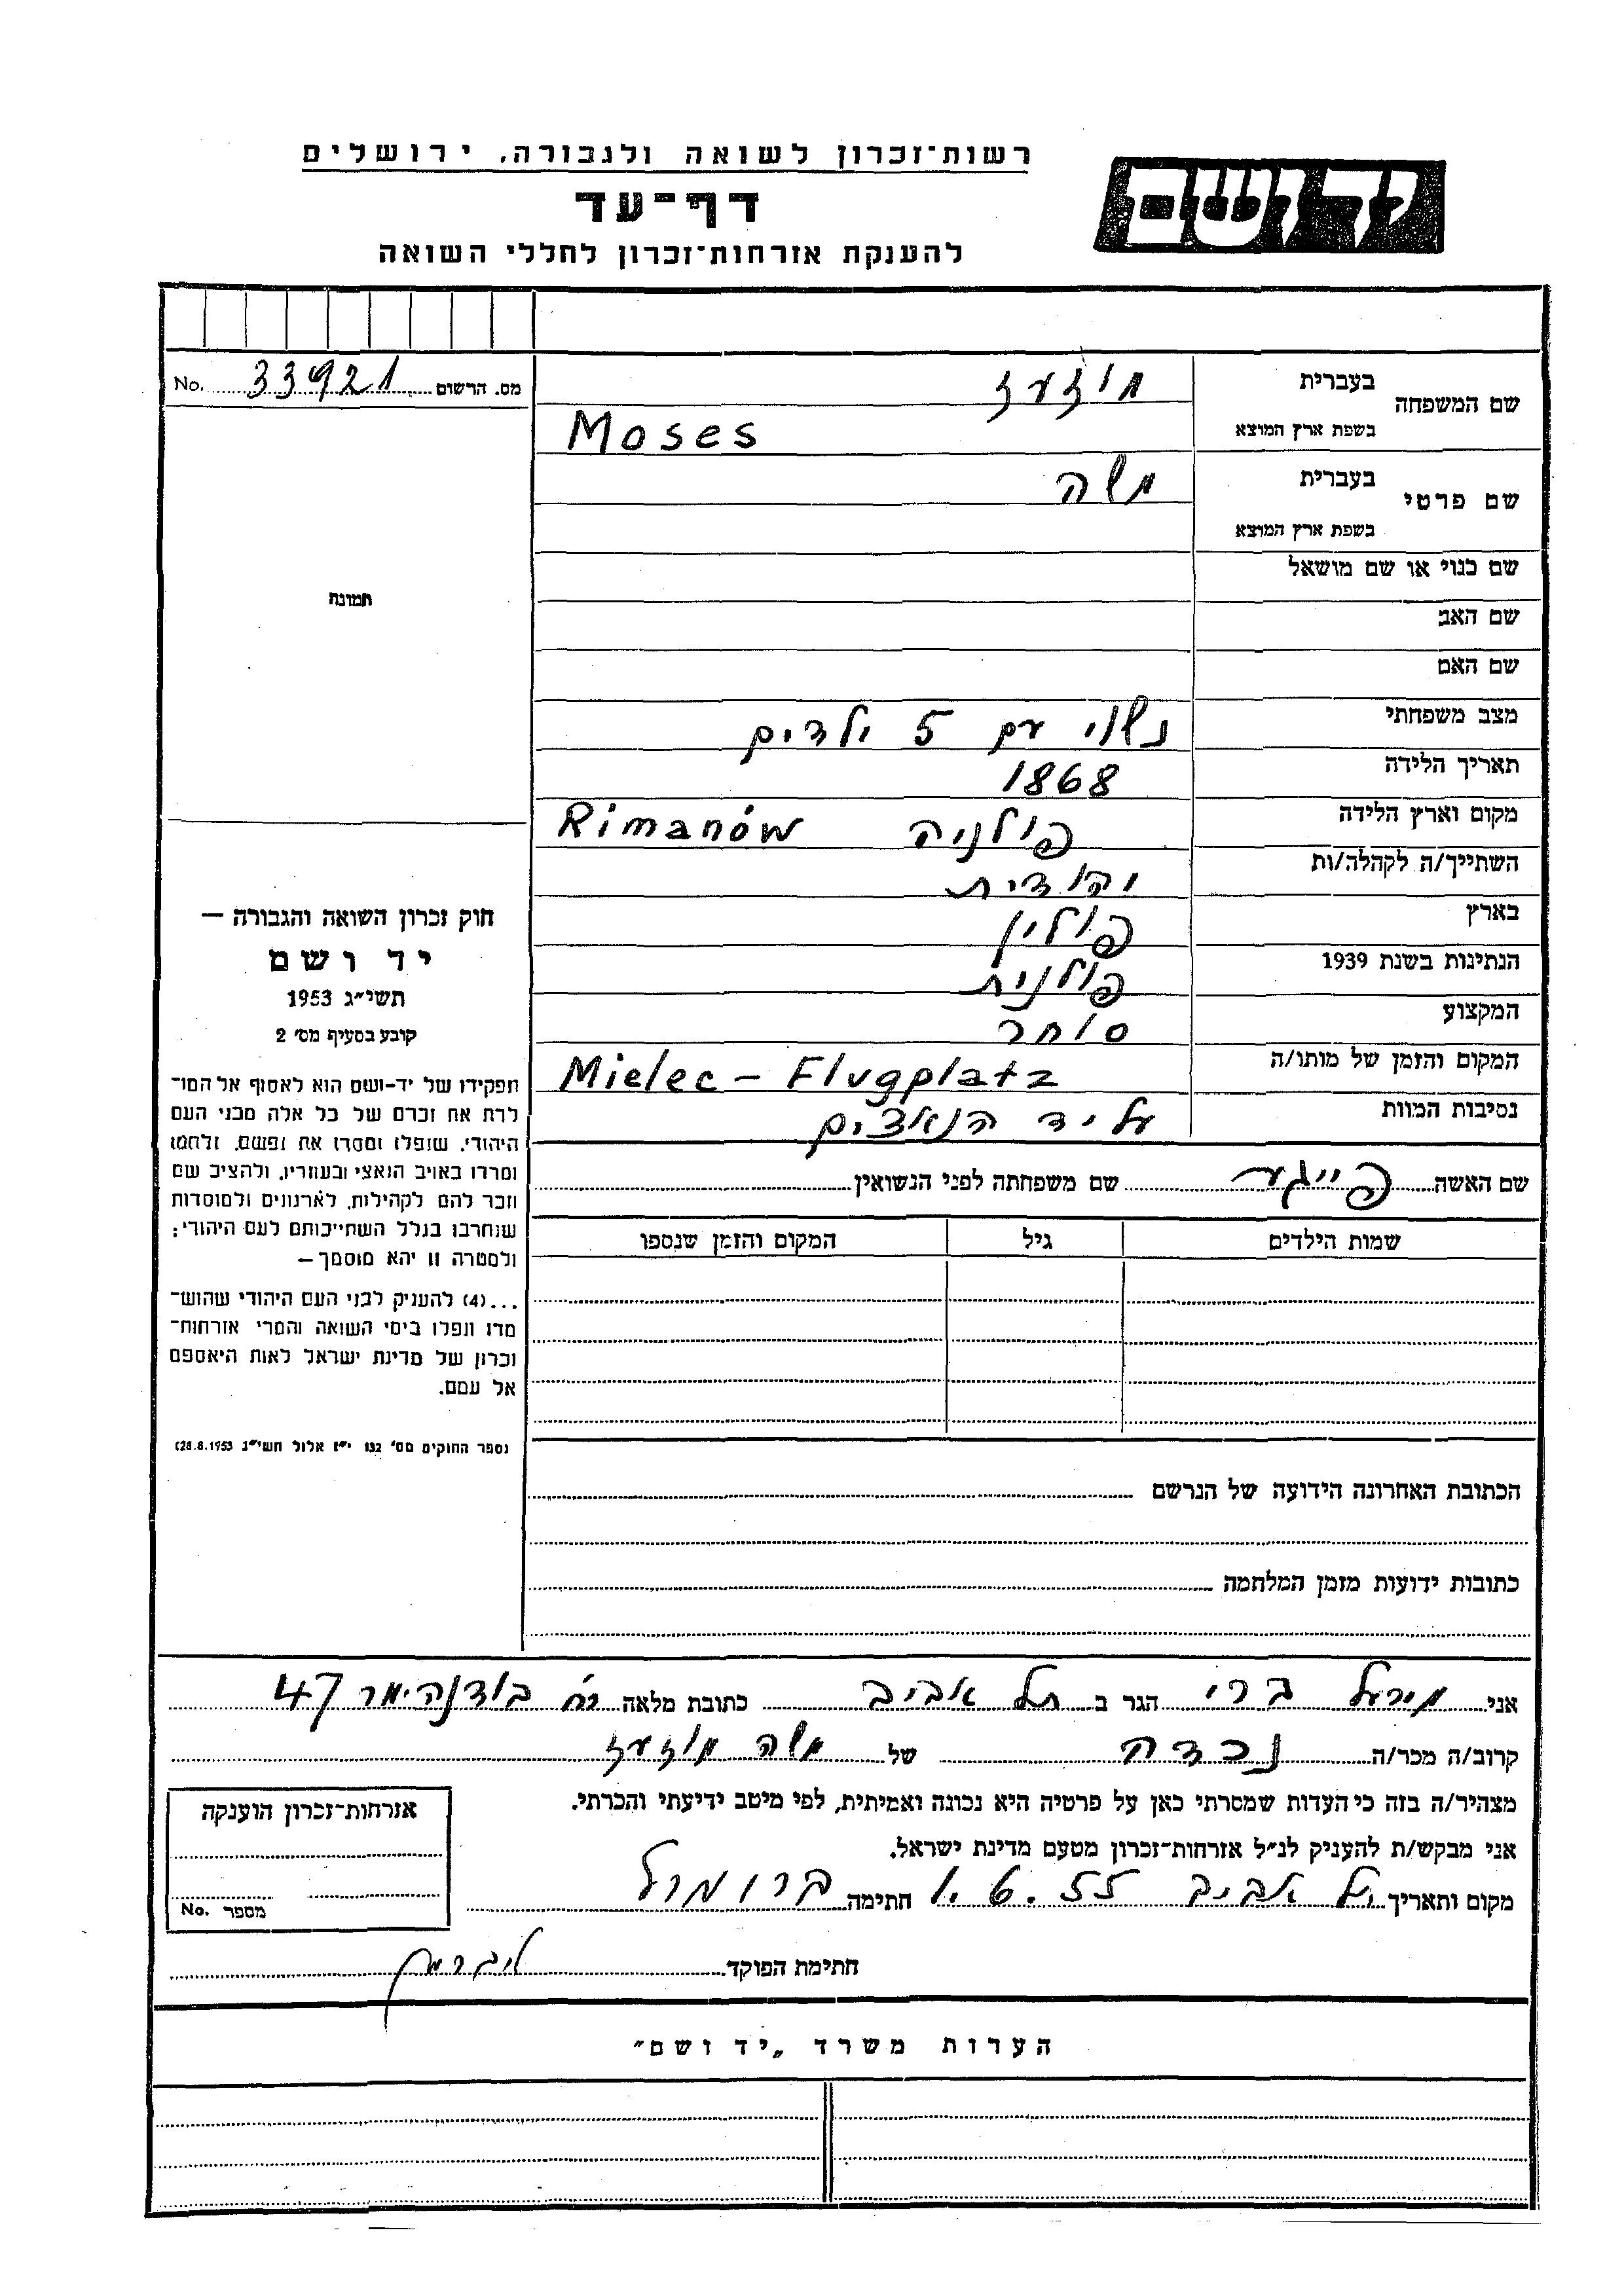 רשות־זכרון לשואה ולגבורה, ירושלים
יד ושם
דף־עד
להענקת אזרחות־זכרון לחללי השואה
מס. הרשום 33921 No.
שם המשפחה
בעברית מוזעז
בשפת ארץ המוצא Moses
שם פרטי
בעברית משה
בשפת ארץ המוצא
שם כנוי או שם מושאל
שם האב
שם האם
מצב משפחתי נשוי עם 5 ילדים
תאריך הלידה 1868
מקום וארץ הלידה פולניה Rimanów
השתייך/ה לקהלה/ות יהודית
בארץ פולין
הנתינות בשנת 1939 פולנית
המקצוע סוחר
המקום והזמן של מותו/ה Mielec – Flugplatz
נסיבות המוות על יד הנאצים
שם האשה פייגע שם משפחתה לפני הנשואין
שמות הילדים גיל המקום והזמן שנספו
הכתובת האחרונה הידועה של הנרשם
כתובות ידועות מזמן המלחמה
תמונה
חוק זכרון השואה והגבורה –
יד ושם
תשי״ג 1953
קובע בסעיף מס׳ 2
תפקידו של יד-ושם הוא לאסוף אל המו־
לדת את זכרם של כל אלה מבני העם
היהודי, שנפלו ומסרו את נפשם, נלחמו
ומרדו באויב הנאצי ובעוזריו, ולהציב שם
וזכר להם לקהילות, לארגונים ולמוסדות
שנחרבו בגלל השתייכותם לעם היהודי;
ולמטרה זו יהא מוסמך –
...(4) להעניק לבני העם היהודי שהוש־
מדו ונפלו בימי השואה והמרי אזרחות־
זכרון של מדינת ישראל לאות היאספם
אל עמם.
(ספר החוקים מס׳ 132 י״ז אלול תשי״ג 28.8.1953)
אני ברי הגר ב תל אביב כתובת מלאה רח׳ בודנהימר 47
קרוב/ה מכר/ה נכדה של משה מוזעז
מצהיר/ה בזה כי העדות שמסרתי כאן על פרטיה היא נכונה ואמיתית, לפי מיטב ידיעתי והכרתי.
אני מבקש/ת להעניק לנ״ל אזרחות־זכרון מטעם מדינת ישראל.
מקום ותאריך תל אביב 1.6.55 חתימה
אזרחות־זכרון הוענקה
מספר No.
חתימת הפוקד ליברמן
הערות משרד „יד ושם״